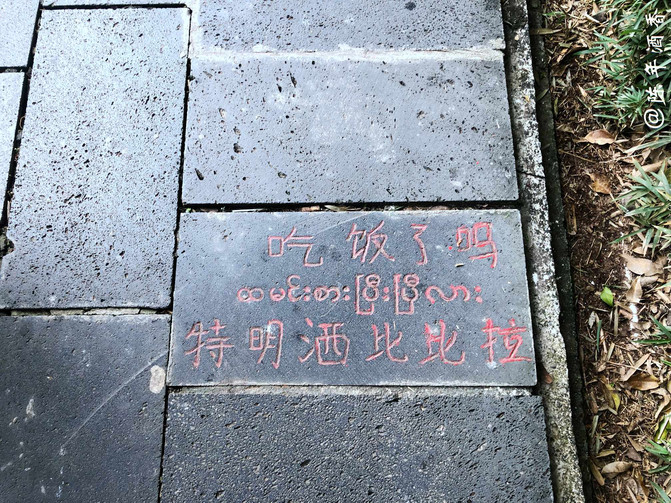 吃饭了吗
ထမင်းစားပြီးပြီလား
特明洒比比拉
@陈年酒香